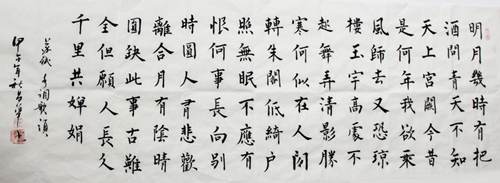 明月幾時有把
酒問青天不知
天上宮闕今昔
是何年我欲乘
風歸去又恐瓊
樓玉宇高處不
起舞弄清影勝
寒何似在人間
轉朱閣低綺户
照無眠不應有
恨何事長向別
時圓人有悲歡
離合月有陰晴
圓缺此事古難
全但願人長久
千里共嬋娟
蘇軾水調歌頭
甲午年秋